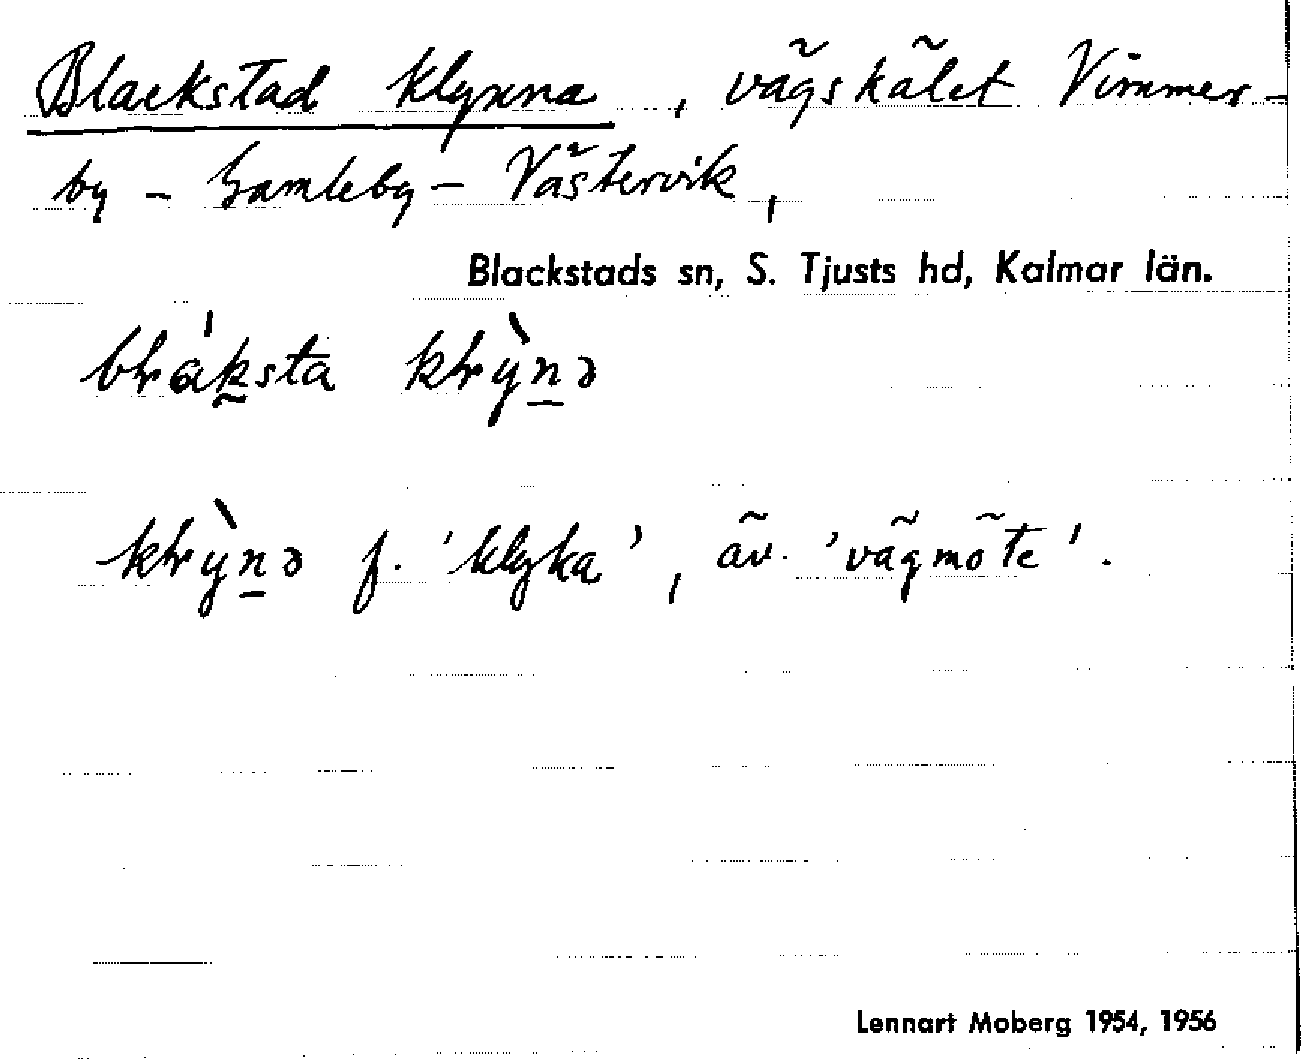 Blackstad klynna, vägskälet Vimmer-
by - Gamleby - Västervik,
Blackstads sn, S. Tjusts hd, Kalmar län.
klỳnə f. 'klyka', äv. 'vägmöte'.
Lennart Moberg 1954, 1956